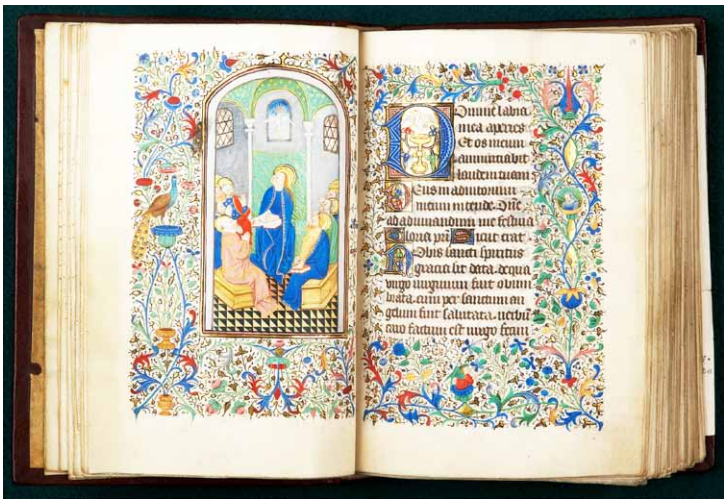 Domine labia
mea aperies
Et os meum
annuntiabit
laudem tuam
Deus in adiutorium
meum intende. Dne
ad adiuuandum me festina
Gloria pri Sicut erat
Nobis sancti spiritus
gracia sit data. de qua
uirgo uirginum fuit obum
brata. cum per sanctum an
gelum fuit salutata. uerbum
caro factum est uirgo fecun